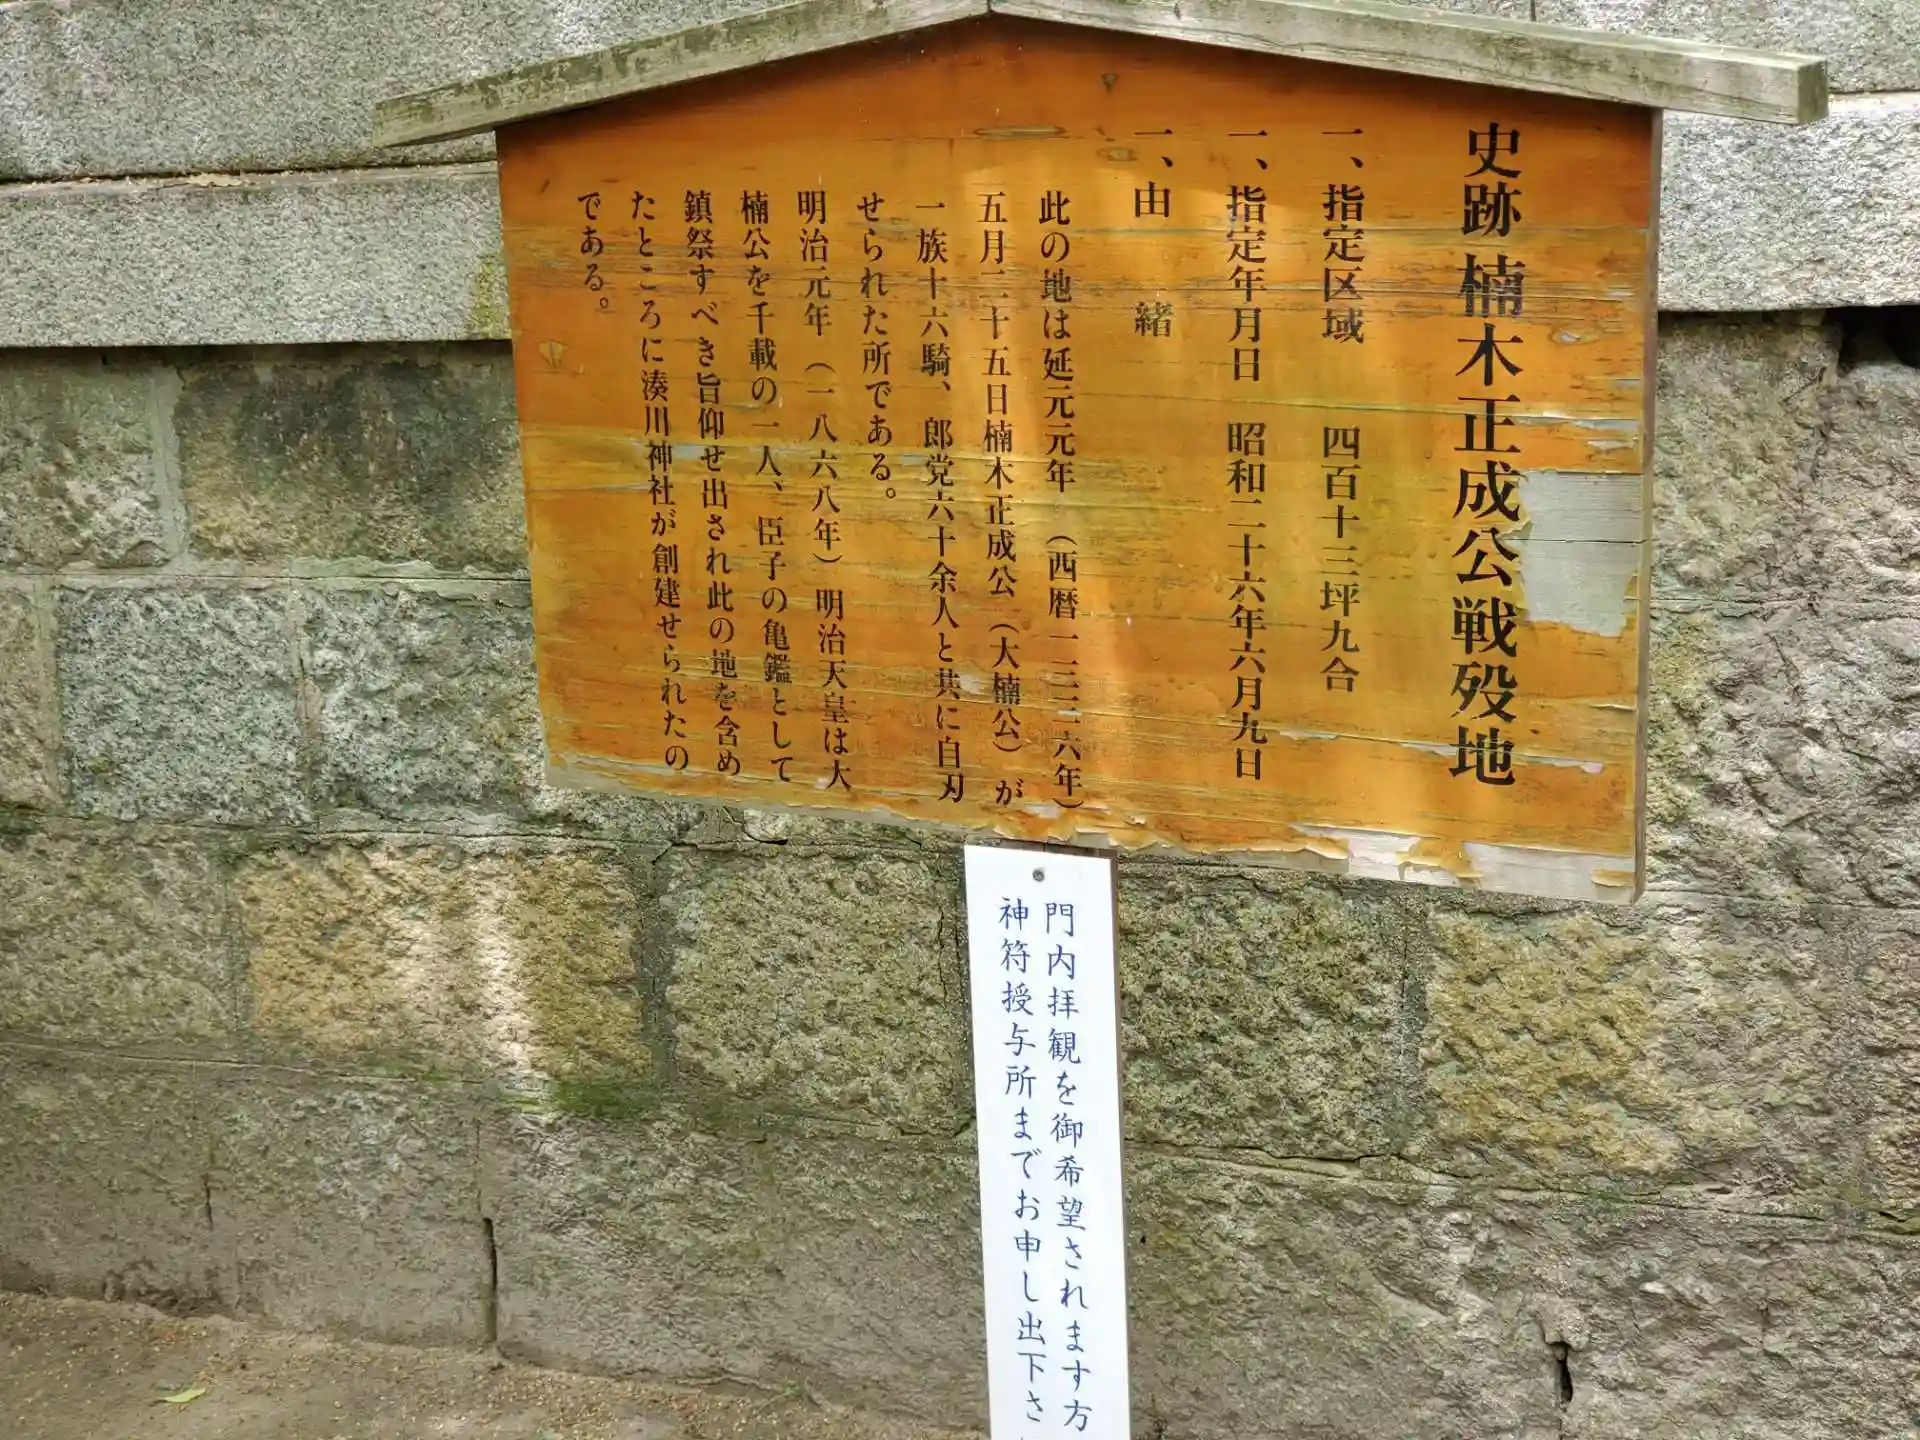 史跡 楠木正成公戦歿地
一、指定区域 四百十三坪九合
一、指定年月日 昭和二十六年六月九日
一、由 緒
此の地は延元元年（西暦一三三六年）
五月二十五日楠木正成公（大楠公）が
一族十六騎、郎党六十余人と共に自刃
せられた所である。
明治元年（一八六八年）明治天皇は大
楠公を千載の一人、臣子の亀鑑として
鎮祭すべき旨仰せ出され此の地を含め
たところに湊川神社が創建せられたの
である。
門内拝観を御希望されます方
神符授与所までお申し出下さ